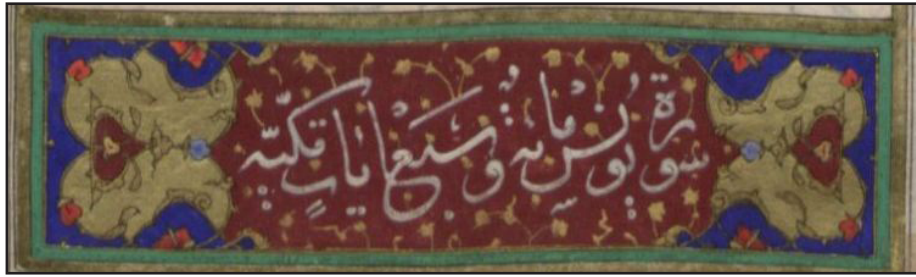 سورة يونس مائة وتسع ايات مكية